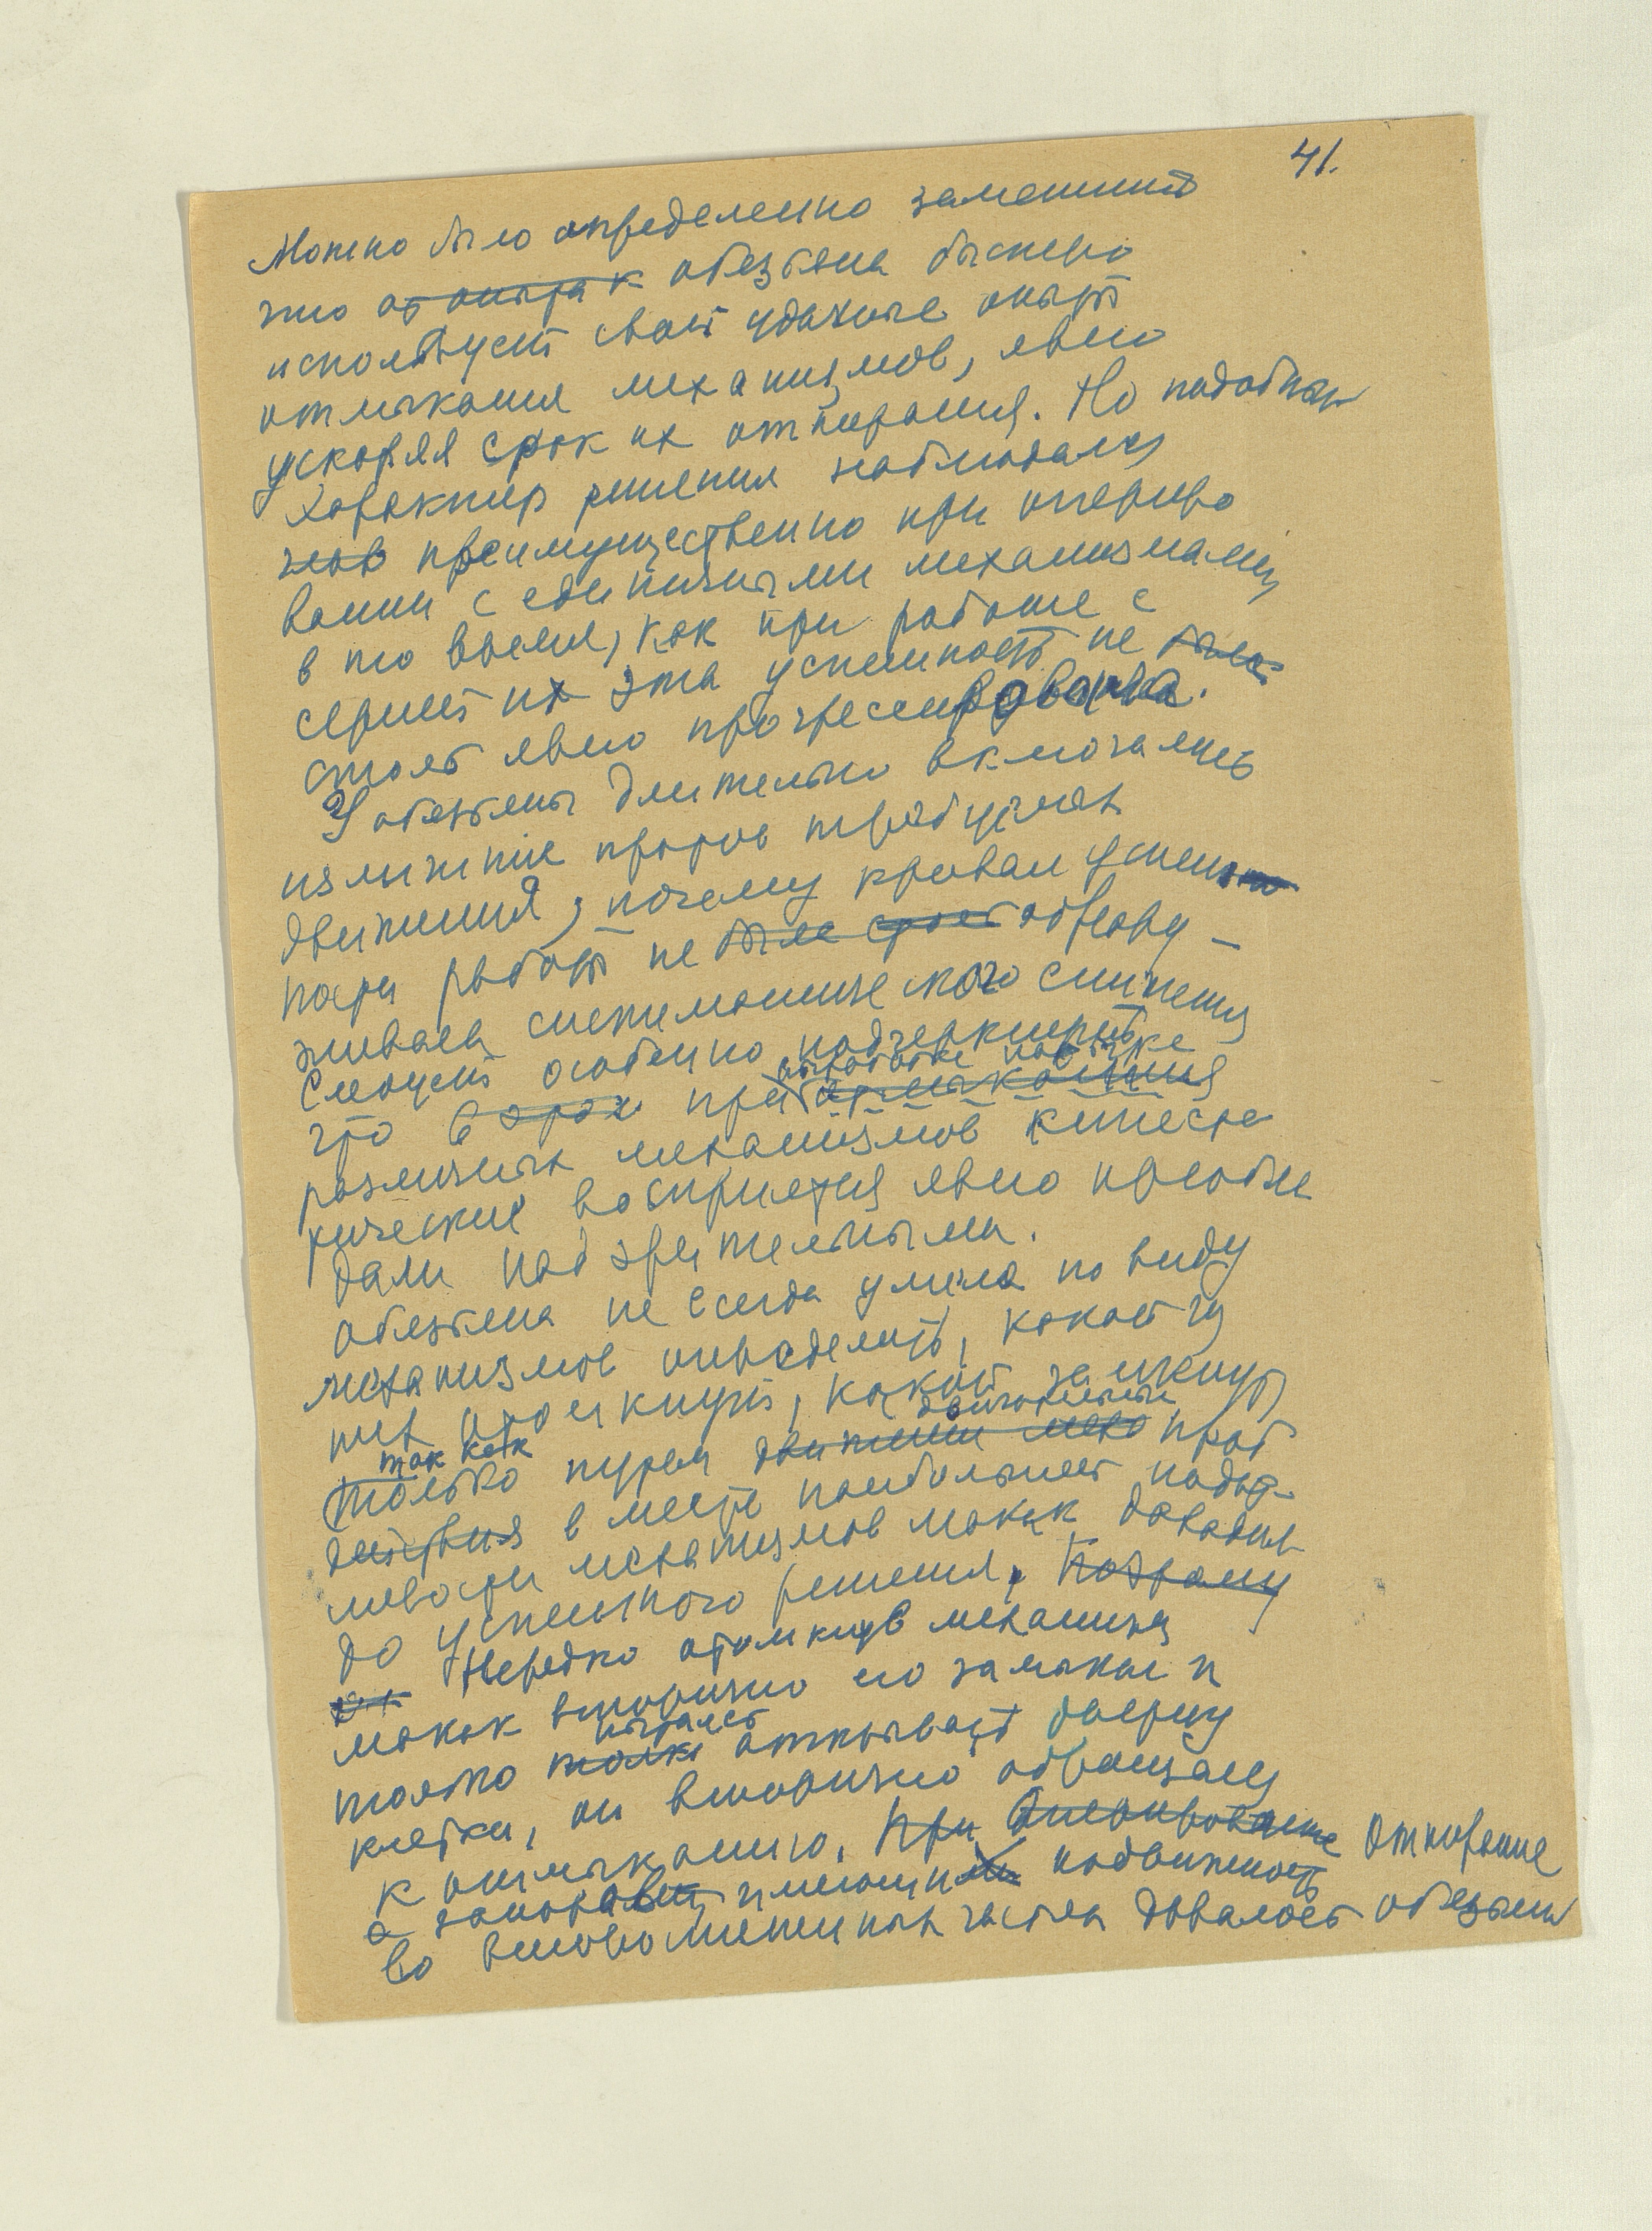 41.
Можно было определенно заметить
что от опыта к обезьяна быстро
использует свой удачные опыт
отмыкания механизмов, явно
ускоряя срок их отпирания. Но подобный
характер решения наблюдался
преимущественно при опериро
вании с единичными механизмами,
в то время, как при работе с
серией их эта успешность не была
столь явно прогрессирована.
У обезьяны длительно включались
излишние против требуемых
движения, почему кривая успеш
ности работы не была обнару-
живала систематического снижения
Следует особенно подчеркнуть
выработке навыке
что в этих при отмыкания
различных механизмов кинесте
тические восприятия явно преобла
дали над зрительными.
Обезьяна не всегда умела по виду
механизмов определить, какой из
них отомкнут, какой замкнут
так как двигательных
только путем движений проб
действия в месте наибольшей подат-
ливости механизмов макак доходил
до успешного решения. Поэтому
Нередко отомкнув механизм
макак вторично его замыкал и
пытаясь
только открывать дверцу
клетки, он вторично обращался
к отмыканию. При оперирование Открывание
а запоров, имеющих подвижность
во вторичных частях давалось обезьяне